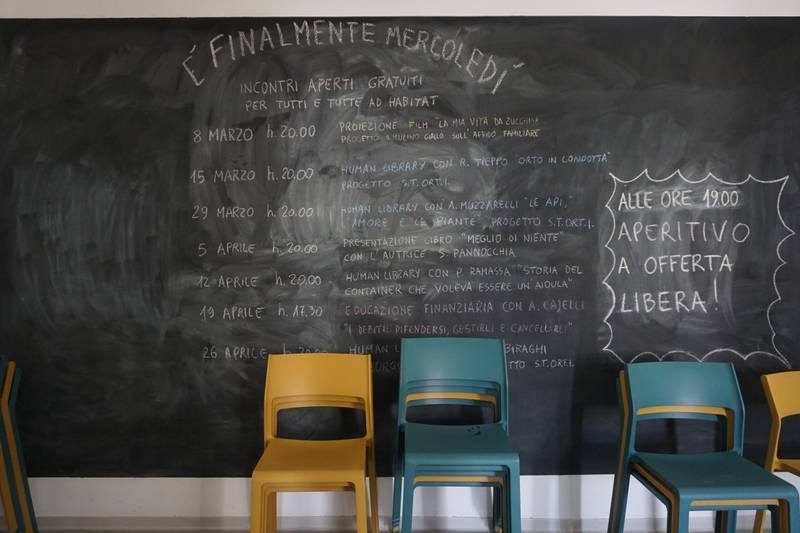 É FINALMENTE MERCOLEDÍ
INCONTRI APERTI GRATUITI
PER TUTTI E TUTTE AD HABITAT
8 MARZO h. 20.00 PROIEZIONE FILM "LA MIA VITA DA ZUCCHINA
PROGETTO MULINO GIALLO SULL'AFFIDO FAMILIARE
15 MARZO h. 20.00 HUMAN LIBRARY CON R. TIEPPO "ORTO IN CONDOTTA"
PROGETTO S.T.ORT.I.
29 MARZO h. 20.00 HUMAN LIBRARY CON A. MUZZARELLI "LE API,
AMORE E LE PIANTE". PROGETTO S.T.ORT.I.
5 APRILE h. 20.00 PRESENTAZIONE LIBRO "MEGLIO DI NIENTE"
CON L'AUTRICE S. PANNOCCHIA
12 APRILE h. 20.00 HUMAN LIBRARY CON P. RAMASSA "STORIA DEL
CONTAINER CHE VOLEVA ESSERE UN'AIUOLA"
19 APRILE h. 17.30 EDUCAZIONE FINANZIARIA CON A. CAJELLI
"I DEBITI: DIFENDERSI, GESTIRLI E CANCELLARLI"
26 APRILE HUMAN BIRAGHI
S.T.ORT.I.
ALLE ORE 19.00
APERITIVO
A OFFERTA
LIBERA!